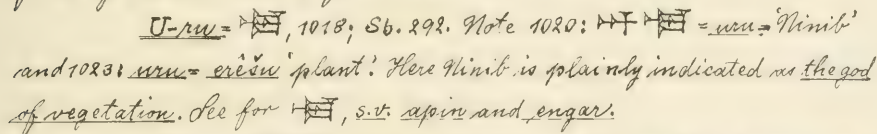 U-ru = 𒀳, 1018; Sb. 292. Note 1020: 𒀭 𒀳 = uru = 'Ninib'
and 1023: uru = erêšu 'plant'. Here Ninib is plainly indicated as the god
of vegetation. See for 𒀳, s.v. apin and engar.